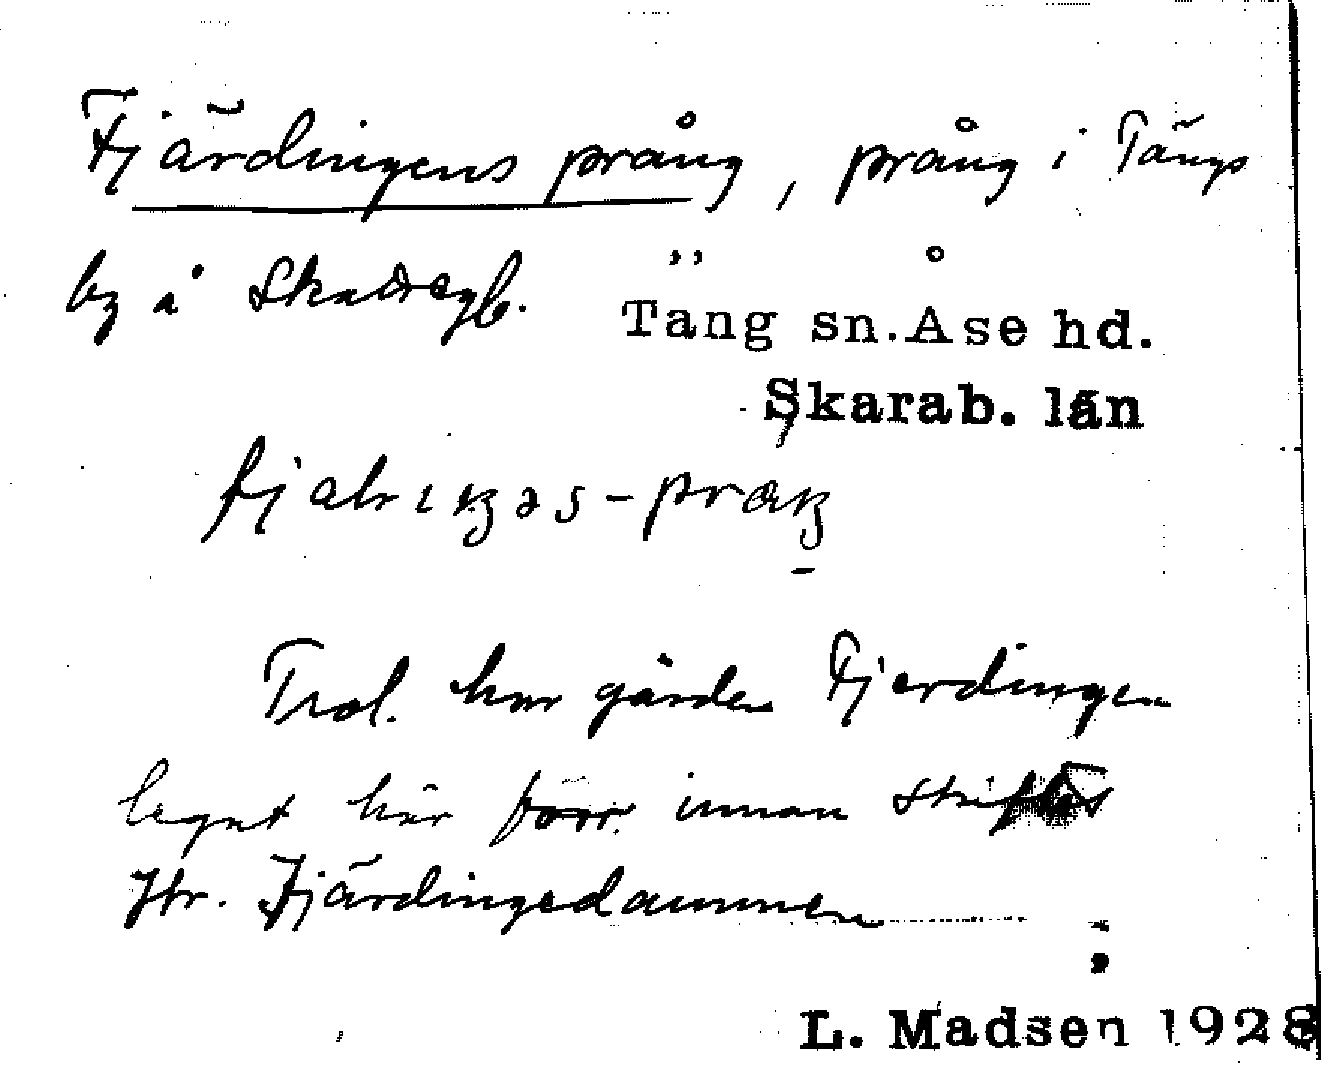 Fjärdingens prång, prång i Tängs
by å
Täng sn. Åse hd.
Skarab. län
Trol. har gården Fjerdingen
legat här förr innan skiftet
Jfr. Fjärdingedammen
L. Madsen 1928